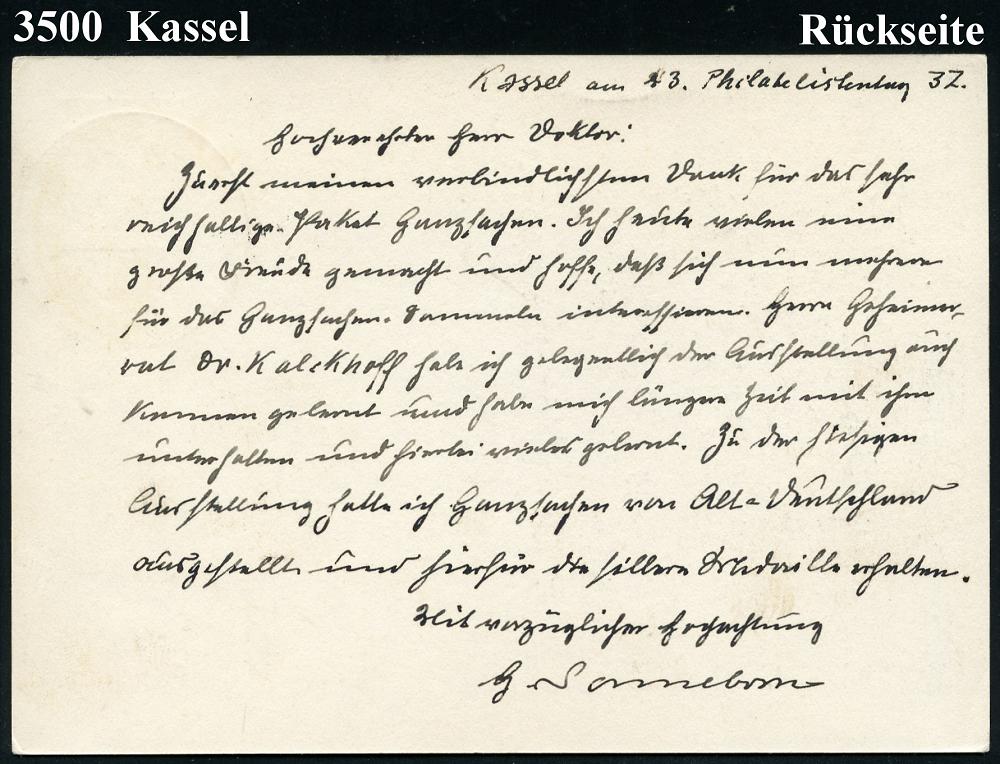 3500 Kassel
Rückseite
Kassel am 43. Philatelistentag 37.
Hochverehrter Herr Doktor!
Zuerst meinen verbindlichsten Dank für das sehr
reichhaltige Paket Ganzsachen. Ich heute vielen eine
große Freude gemacht und hoffe, daß sich nun mehrere
für das Ganzsachen-Sammeln interessieren. Herrn Geheimer-
rat Dr. Kalckhoff habe ich gelegentlich der Ausstellung auch
kennen gelernt und habe mich längere Zeit mit ihm
unterhalten und hierbei vieles gelernt. Zu der hiesigen
Ausstellung hatte ich Ganzsachen von Alt-Deutschland
ausgestellt und hierfür die silberne Medaille erhalten.
Mit vorzüglicher Hochachtung
G. Sonneborn